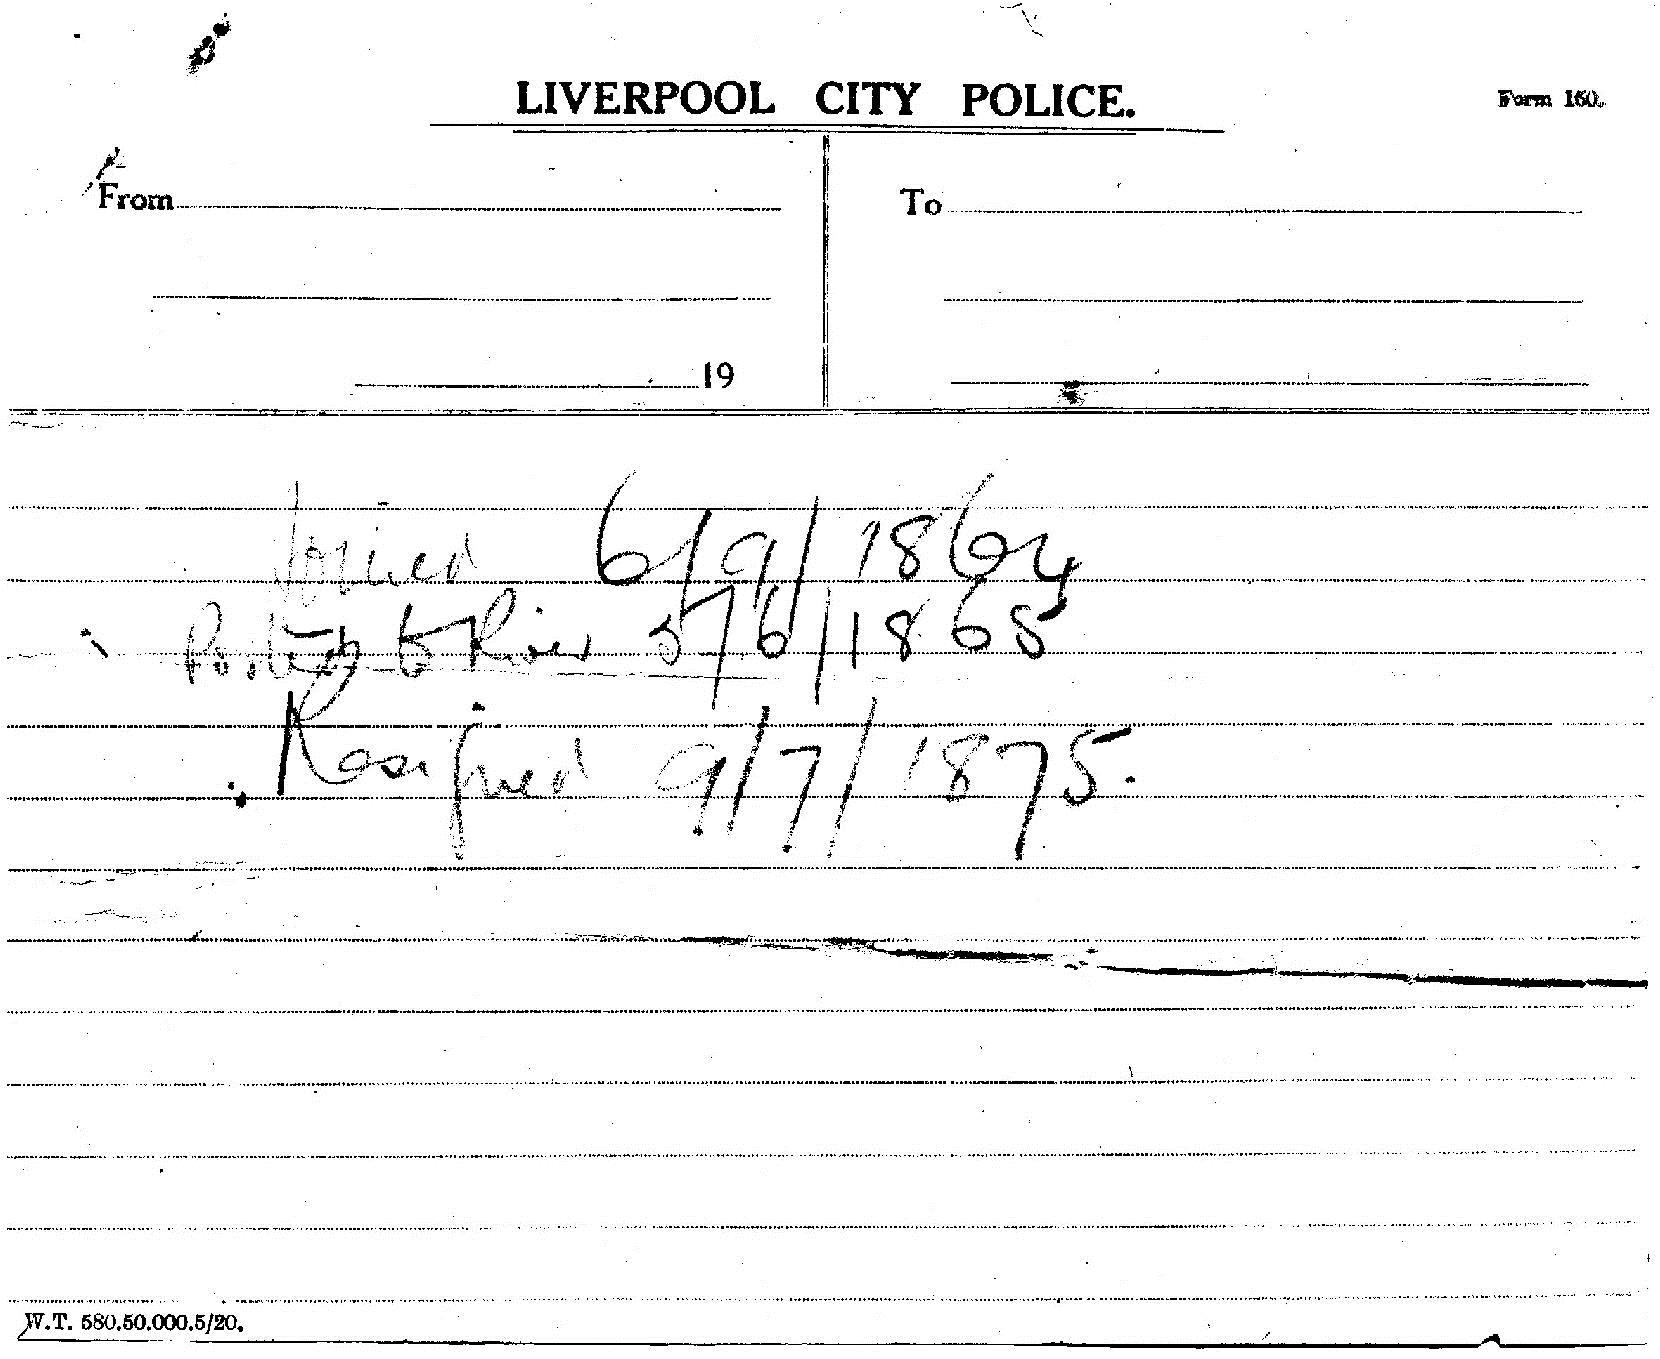 LIVERPOOL CITY POLICE.
Form 160.
From
To
19
Joined 6/9/1864
Posted to River 5/6/1865
Resigned 9/7/1875.
W.T. 580.50.000.5/20.